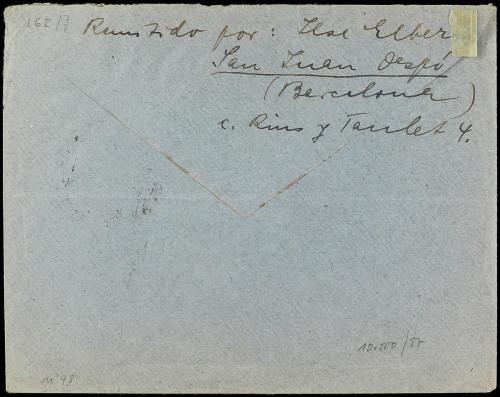 Remitido por: Ilse Elber
San Juan Despí
(Barcelona)
c. Rius y Taulet 4.
10.000/87
N° 98